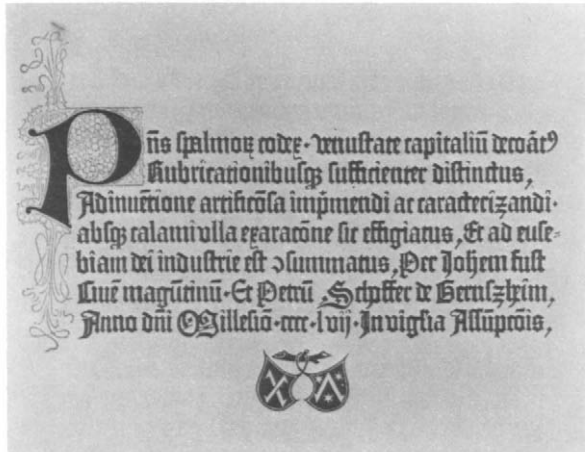 Pn̄s spalmoꝝ codex · venustate capitaliū decoāt⁹
Rubricationibusqꝫ sufficienter distinctus,
Adinuētione artificōsa impͥmendi ac caracterizandi ·
absqꝫ calami vlla exaracōne sic effigiatus, Et ad euse-
biam dei industrie est ↄsummatus, Per Joh̄em fust
Ciuē magūtinū · Et Petrū Schoffer de Gernszheim,
Anno dn̄i Millesio · cccc · lvij · In vigl̄ia Assūpcōis,